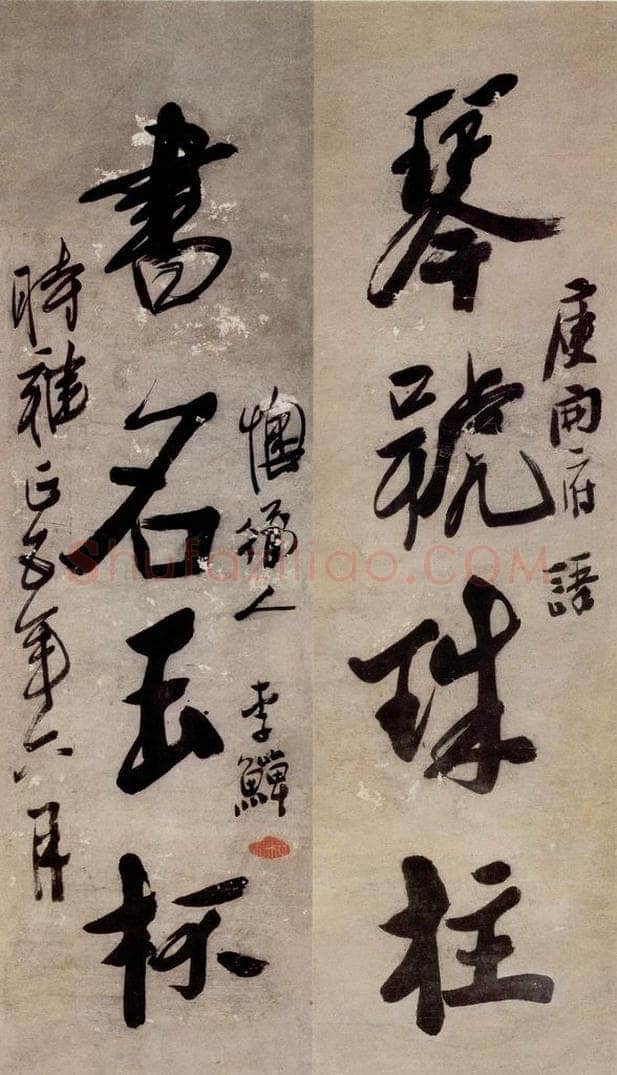 庾開府語
琴號珠柱
懊道人 李鱓
書名玉杯
時雍正五年六月
Shufaziliao.COM